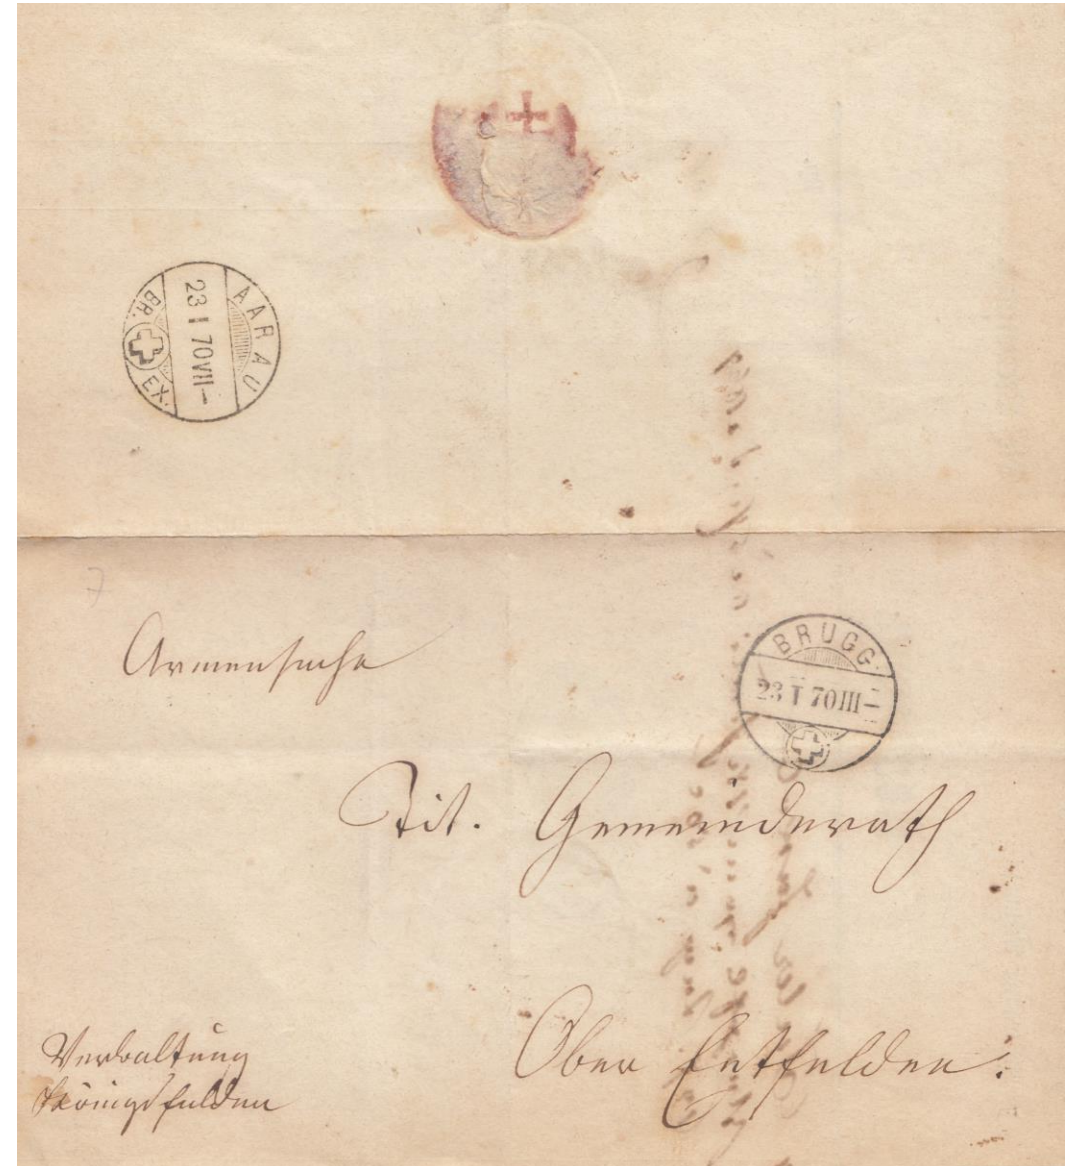 AARAU
23 I 70 VII –
BR. EX.
7
Armensache
BRUGG
23 I 70 III –
Tit. Gemeinderath
Ober Entfelden.
Verwaltung
Königsfelden